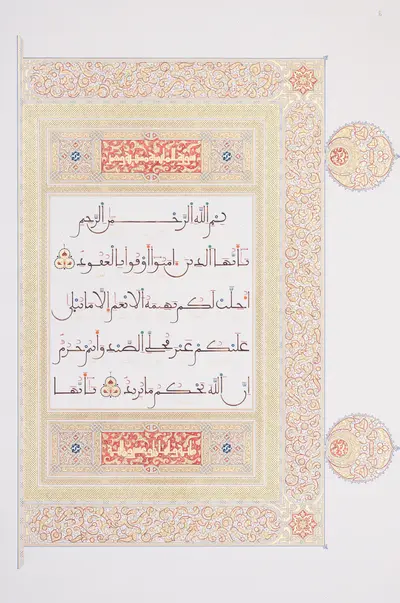 بسم الله الرحمن الرحيم
يأيها الذين امنوا أوفوا بالعقود
احلت لكم بهيمة الانعم إلا ما يتلى
عليكم غير محلى الصيد وانتم حرم
ان الله يحكم ما يريد يأيها